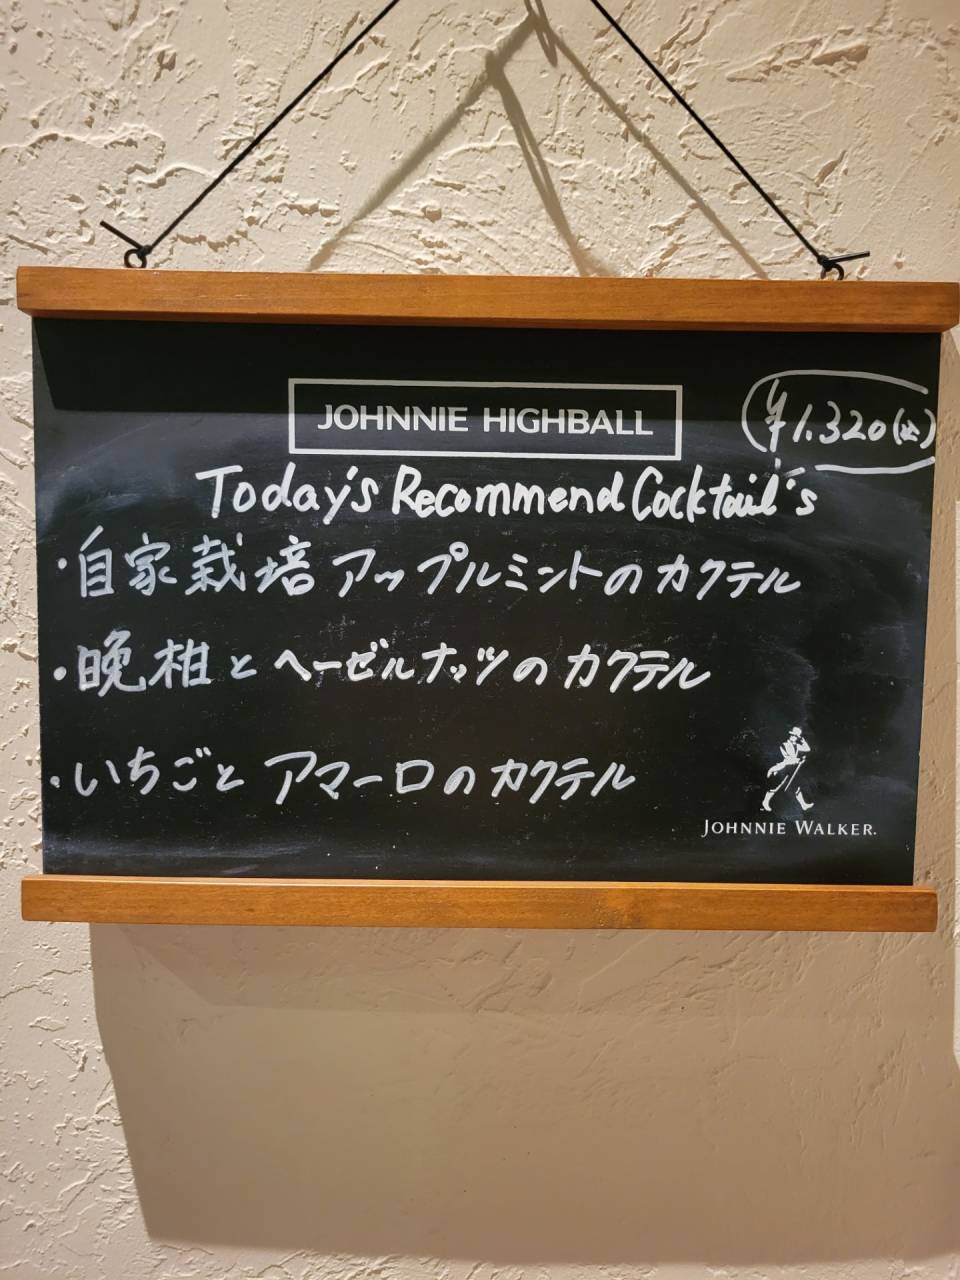 JOHNNIE HIGHBALL
¥1.320(込)
Today's Recommend Cocktail's
・自家栽培アップルミントのカクテル
・晩柑とヘーゼルナッツのカクテル
・いちごとアマーロのカクテル
JOHNNIE WALKER.